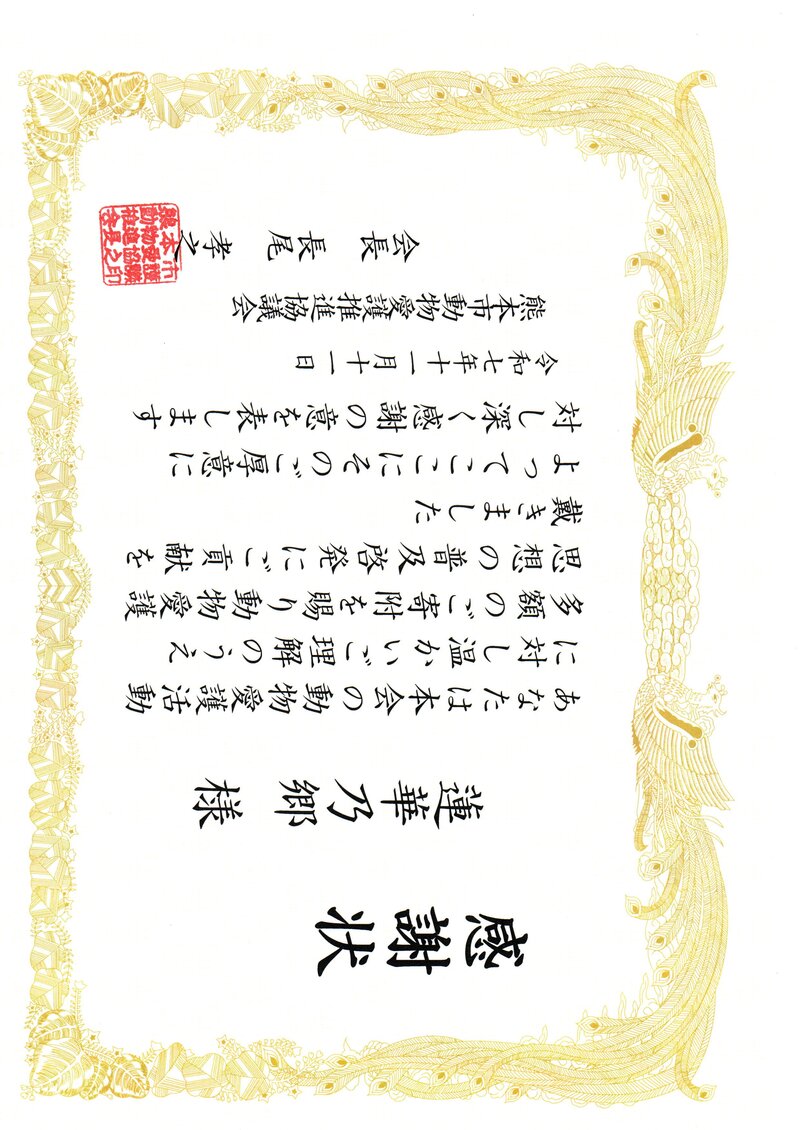 感謝状
蓮華乃郷 様
あなたは本会の動物愛護活動
に対し温かいご理解のうえ
多額のご寄附を賜り動物愛護
思想の普及啓発にご貢献を
戴きました
よってここにそのご厚意に
対し深く感謝の意を表します
令和七年十一月十一日
熊本市動物愛護推進協議会
会長 長尾 孝之
熊本市
動物愛護
推進協議
会長之印